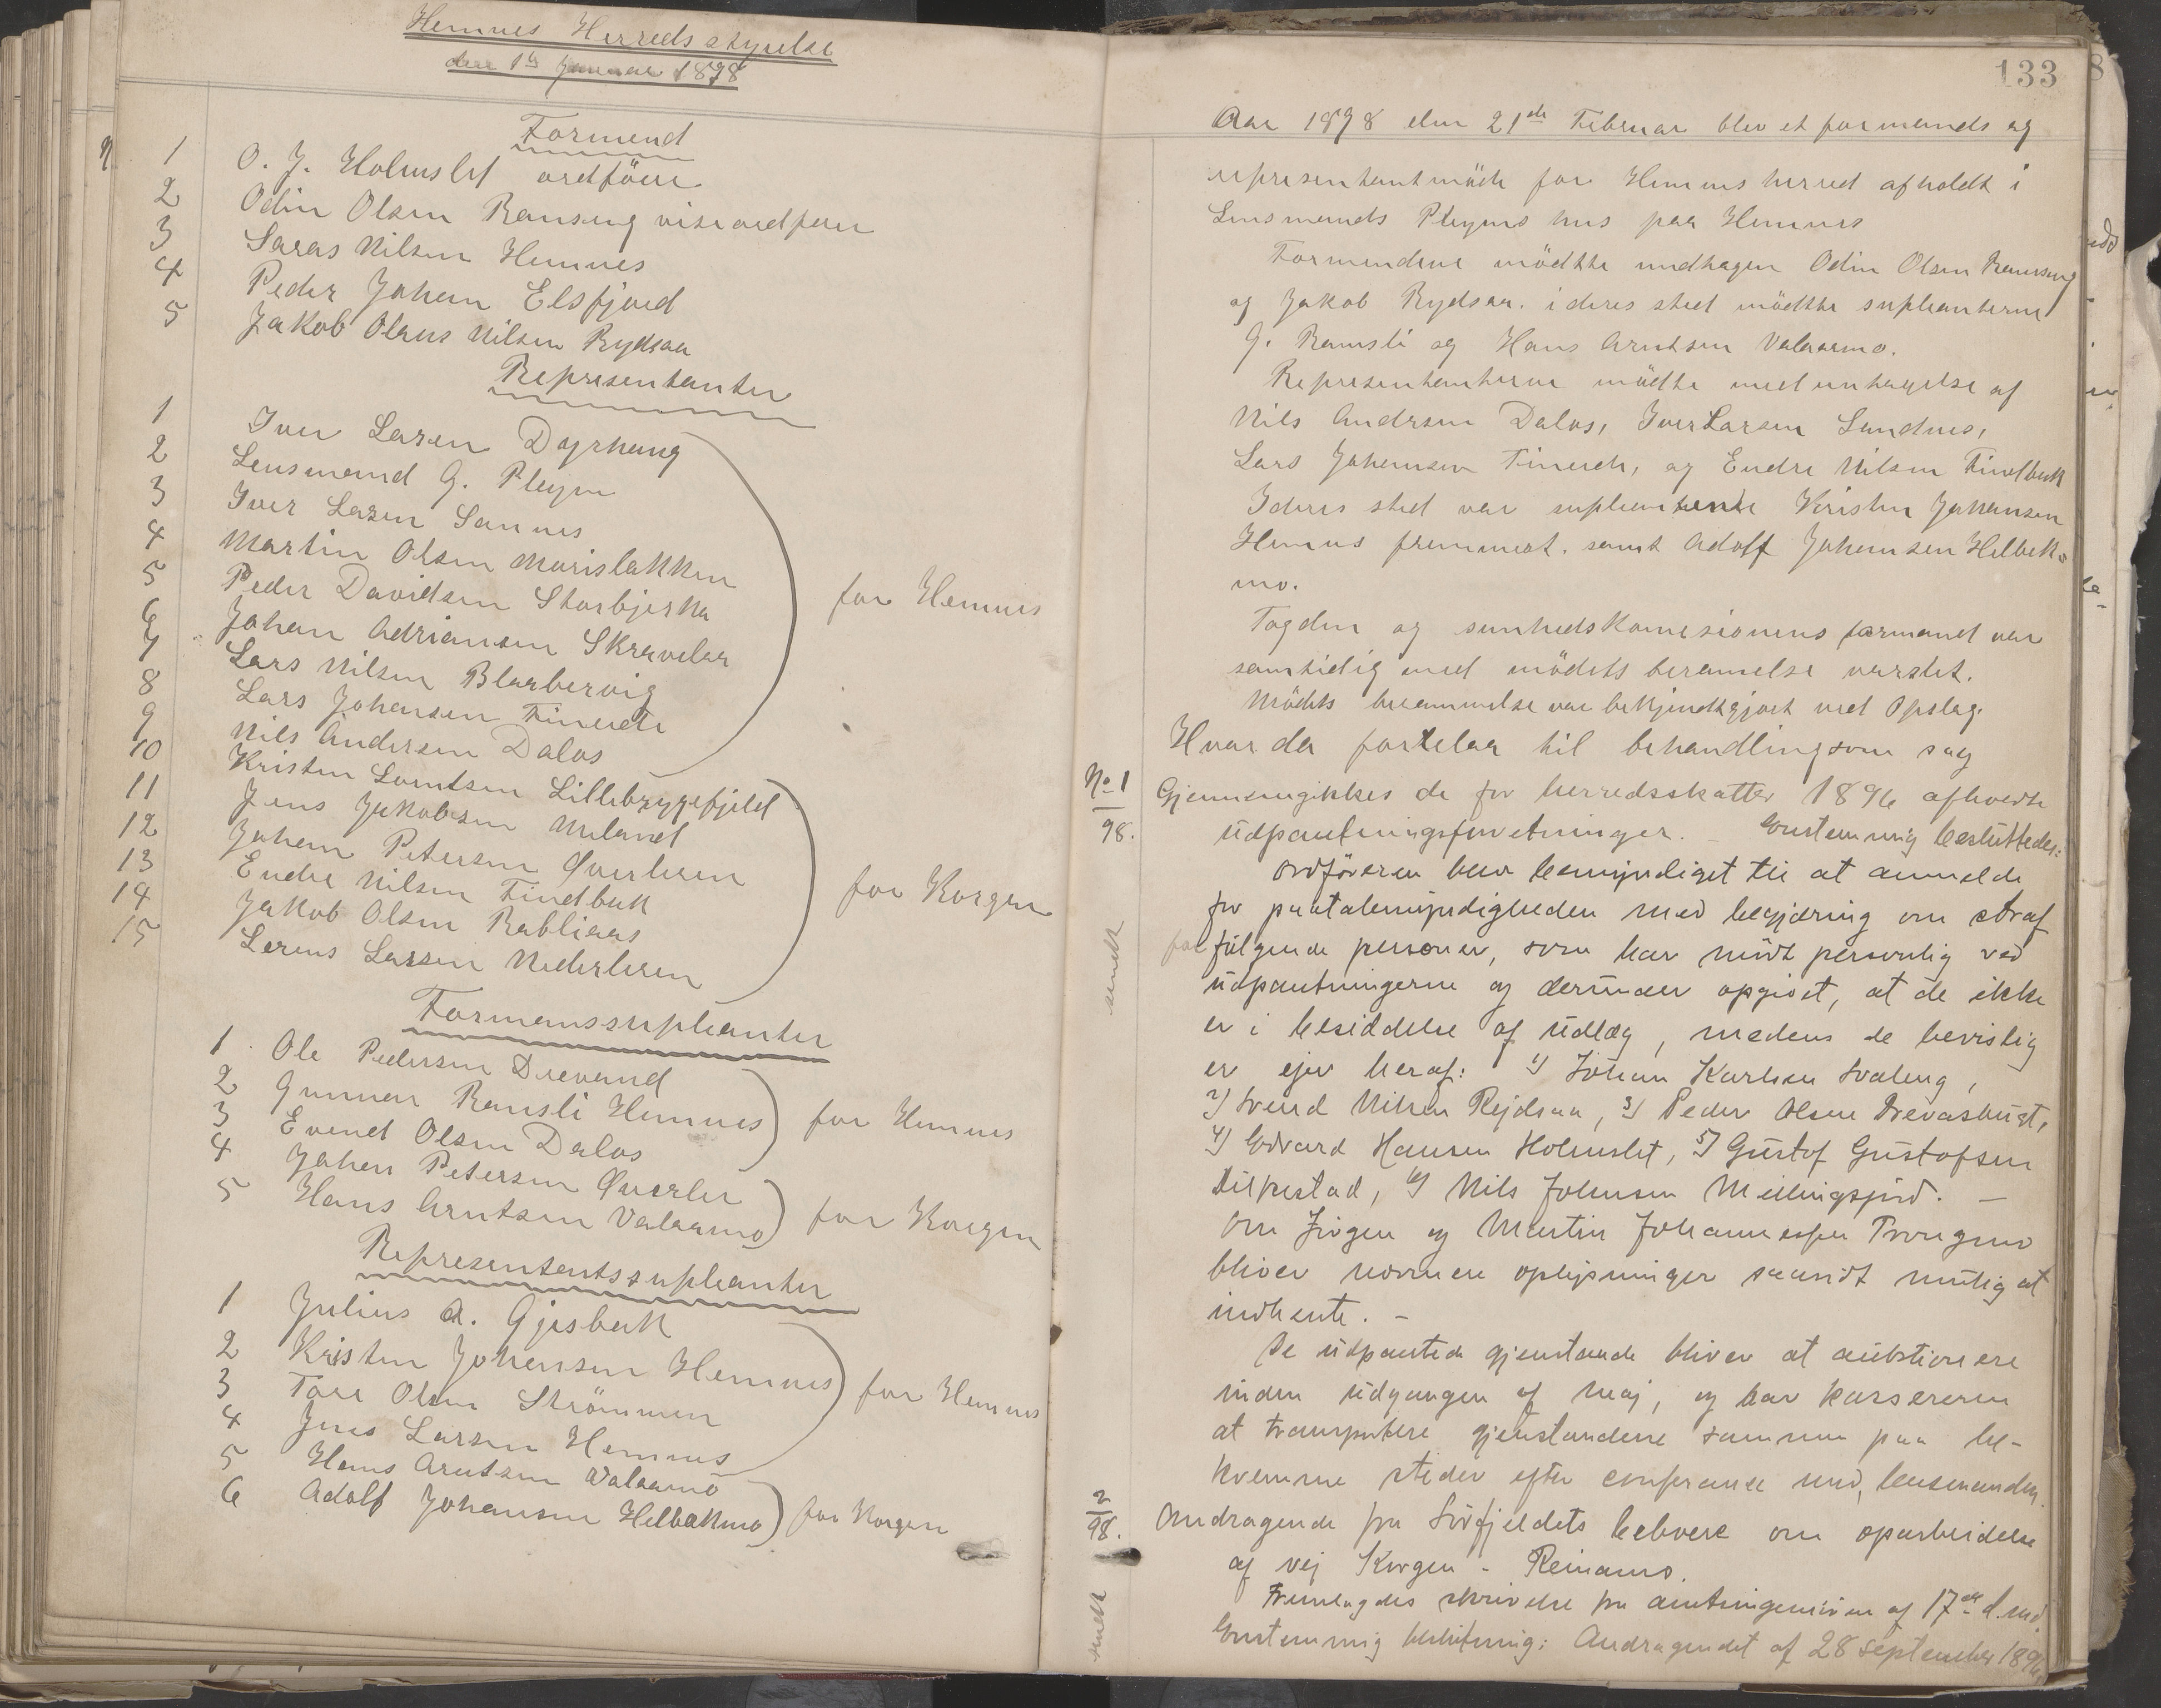 Hemnes Herreds styrelse
den 1te Januar 1898
Formend
1 O. J. Holmslet ordföre
2 Odin Olsen Ranseng viseordfører
3 Laras Nilsen Hemnes
4 Peder Johan Elsfjord
5 Jakob Olaus Nilsen Rydsaa
Representanter
1 Iver Larsen Dyrhaug
2 Lensmand G. Pleym
3 Iver Larsen Sannes
4 Martin Olsen Marislakken
5 Peder Davidsen Storbjerka
6 Johan Adriansen Skravlaa
7 Lars Nilsen Blaabervig
8 Lars Johansen Fineide
9 Nils Andersen Dalos
for Hemnes
10 Kristen Lorntsen Lillebryggefjeld
11 Jens Jakobsen Meland
12 Johan Petersen Øverleren
13 Endre Nilsen Findbak
14 Jakob Olsen Rabliaas
15 Lorens Larsen Nederleren
for Korgen
Formanssupleanter
1 Ole Pedersen Drevand
2 Gunnar Ramsli Hemnes
3 Evend Olsen Dalos
for Hemnes
4 Johan Petersen Øverler
5 Hans Arntsen Valaamo
for Korgen
Representantssupleanter
1 Julius A. Gjesbak
2 Kristen Johansen Hemnes
3 Tore Olsen Strömmen
4 Jens Larsen Hemnes
for Hemnes
5 Hans Arntsen Valaamo
6 Adolf Johansen Helbakmo
for Korgen
133
Aar 1898 den 21de Februar blev et formends og
representantmöde for Hemnes herred afholdt i
Lensmands Pleyms hus paa Hemnes
Formendene mödtte undtagen Odin Olsen Ranseng
og Jakob Rydsaa. i deres sted mödtte supleanterne
G. Ramsli og Hans Arntsen Valaamo.
Representanterne mödte med untagelse af
Nils Andersen Dalos, Iver Larsen Sandnes,
Lars Johansen Fineide, og Endre Nilsen Findbak
I deres sted var supleantene Kristen Johansen
Hemnes fremmöt. samt Adolf Johansen Helbek=
mo.
Fogden og sunhedskomisionens formand var
samtidig med mödets beramelse varslet.
Mödets berammelse var bekjendtgjort ved Opslag.
Hvor da fortelaa til behandling som sag
No 1/98. Gjennemgikkes de for herredsskatter 1896 afholdte
udpantningsforretninger. – Enstemmig besluttedes:
Ordföreren blev bemyndiget til at anmelde
for paatalemyndigheden med begjæring om straf
for fölgende personer, som har mödt personlig ved
udpantningerne og derunder opgivet, at de ikke
er i besiddelse af udlæg, medens de bevislig
er ejer heraf: 1) Johan Karlsen Svaleng,
2) Svend Nilsen Rejdsaa, 3) Peder Olsen Drevasbugt,
4) Edvard Hansen Holmslet, 5) Gustof Gustofsen
Dilkestad, 6) Nils Johnsen Mellingsjord. –
Om Jörgen og Martin Johannessen
bliver nærmere oplysninger saavidt mulig at
indhente. –
De udpantede gjenstande bliver at auktionere
inden udgangen af maj, og har kassereren
at transportere gjenstandene sammen paa be-
kvemme steder efter conferance med lensmanden.
sendt
2/98. Andragende fra Sörfjeldets beboere om oparbeidelse
af vej Korgen - Reinamo.
Fremlagdes skrivelse fra amtsingeniören af 17de d. md.
Enstemmig beslutning: Andragendet af 28 september 1896
sendt